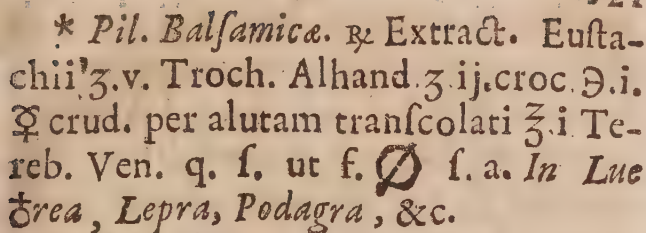 * Pil. Balſamicæ. ℞ Extract. Euſta-
chii ʒ.v. Troch. Alhand. ʒ ij. croc. ℈.i.
☿ crud. per alutam tranſcolati ℥.i Te-
reb. Ven. q. ſ. ut f. ſ. a. In Lue
♁rea, Lepra, Podagra, &c.